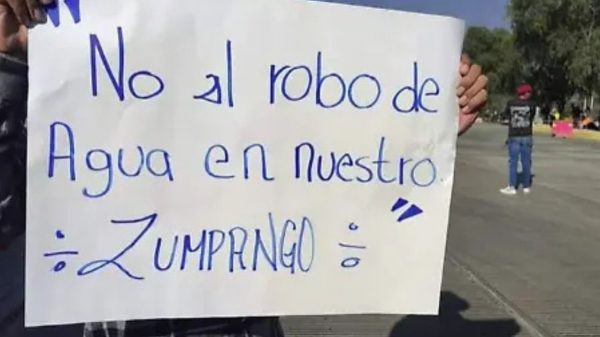 "No al robo de
Agua en nuestro
÷ ZUMPANGO ÷"